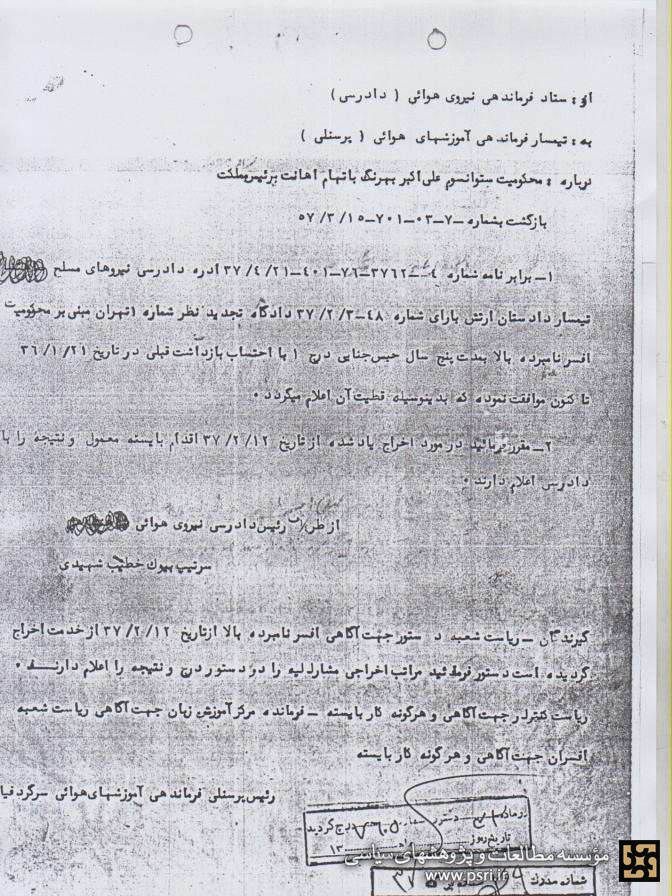 از : ستاد فرماندهی نیروی هوائی ( دادرسی )
به : تیمسار فرماندهی آموزشهای هوائی ( پرسنلی )
درباره : محکومیت ستوانسوم علی اکبر بهرنگ باتهام اهانت برئیس مملکت
بازگشت بشماره -۷-۰۳-۷۰۱-۱۵/۳/۵۷
۱- برابر نامه شماره ۰۴-۳۷۶۲-۷۶-۴۰۱-۳۷/۴/۲۱ اداره دادرسی نیروهای مسلح
تیمسار دادستان ارتش بارای شماره ۴۸-۳۷/۲/۳ دادگاه تجدید نظر شماره ۱ تهران مبنی بر محکومیت
افسر نامبرده بالا بمدت پنج سال حبس جنایی درج ۱ با احتساب بازداشت قبلی در تاریخ ۳۶/۱/۲۱
تا کنون موافقت نموده که بدینوسیله قطعیت آن اعلام میگردد .
۲- مقرر فرمائید در مورد اخراج یاد شده از تاریخ ۳۷/۲/۱۲ اقدام بایسته معمول و نتیجه را با
دادرسی اعلام دارند .
از طرف رئیس دادرسی نیروی هوائی
سرتیپ بیوک خطیب شهیدی
گیرندگان - ریاست شعبه د ستور جهت آگاهی افسر نامبرده بالا از تاریخ ۳۷/۲/۱۲ از خدمت اخراج
گردیده است دستور فرمائید مراتب اخراجی مشارالیه را در دستور درج و نتیجه را اعلام دارند .
ریاست کنترلر جهت آگاهی و هرگونه کار بایسته - فرمانده مرکز آموزش زبان جهت آگاهی ریاست شعبه
افسران جهت آگاهی و هرگونه کار بایسته
رئیس پرسنلی فرماندهی آموزشهای هوائی سرگرد
درج گردید
تاریخ روز
۱۳
شماره مدرک
موسسه مطالعات و پژوهشهای سیاسی
www.psri.ir